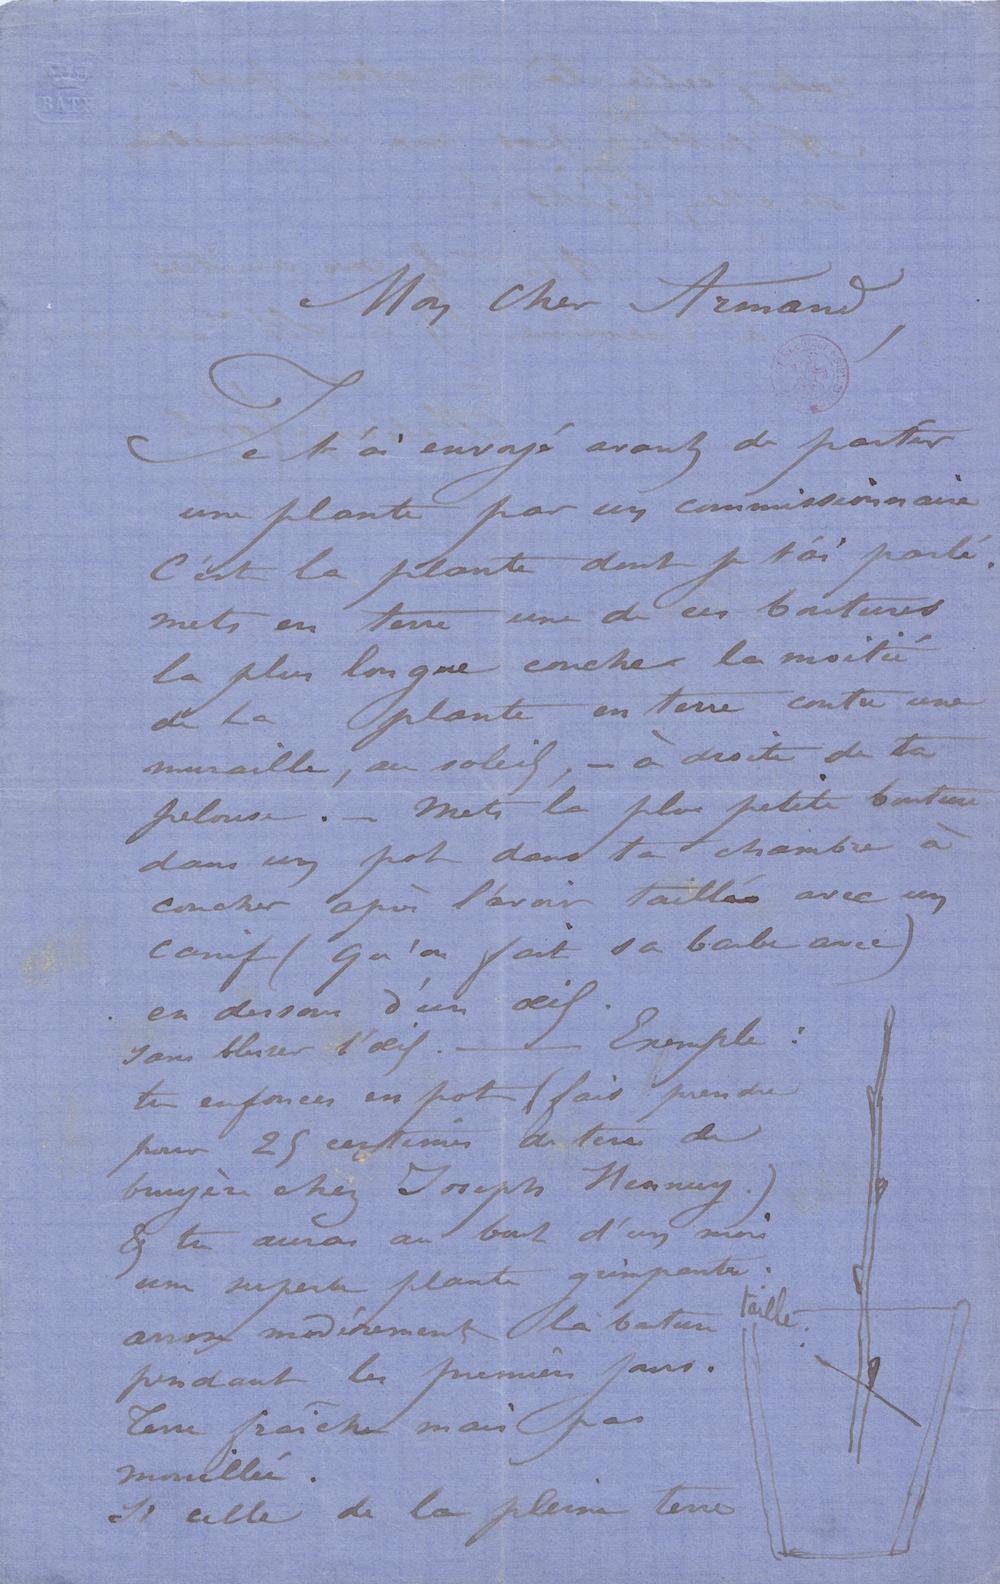 BATH
Mon cher Armand,
Je t'ai envoyé avant de partir
une plante par un commissionnaire
C'est la plante dont je t'ai parlé.
mets en terre une de ces boutures
la plus longue coucher la moitié
de la plante en terre contre une
muraille, au soleil, — à droite de ta
pelouse. — Mets la plus petite bouture
dans un pot dans ta chambre à
coucher après l'avoir taillée avec un
canif (qu'on fait sa barbe avec)
en dessous d'un œil.
sans blesser l'œil. — Exemple :
tu enfonces en pot (fais prendre
pour 25 centimes de terre de
bruyère chez Joseph Hennuy.)
& tu auras au bout d'un mois
une superbe plante grimpante.
arrose modérement la bouture
pendant les premiers jours.
Terre fraîche mais pas
mouillée.
Si celle de la pleine terre
taille.